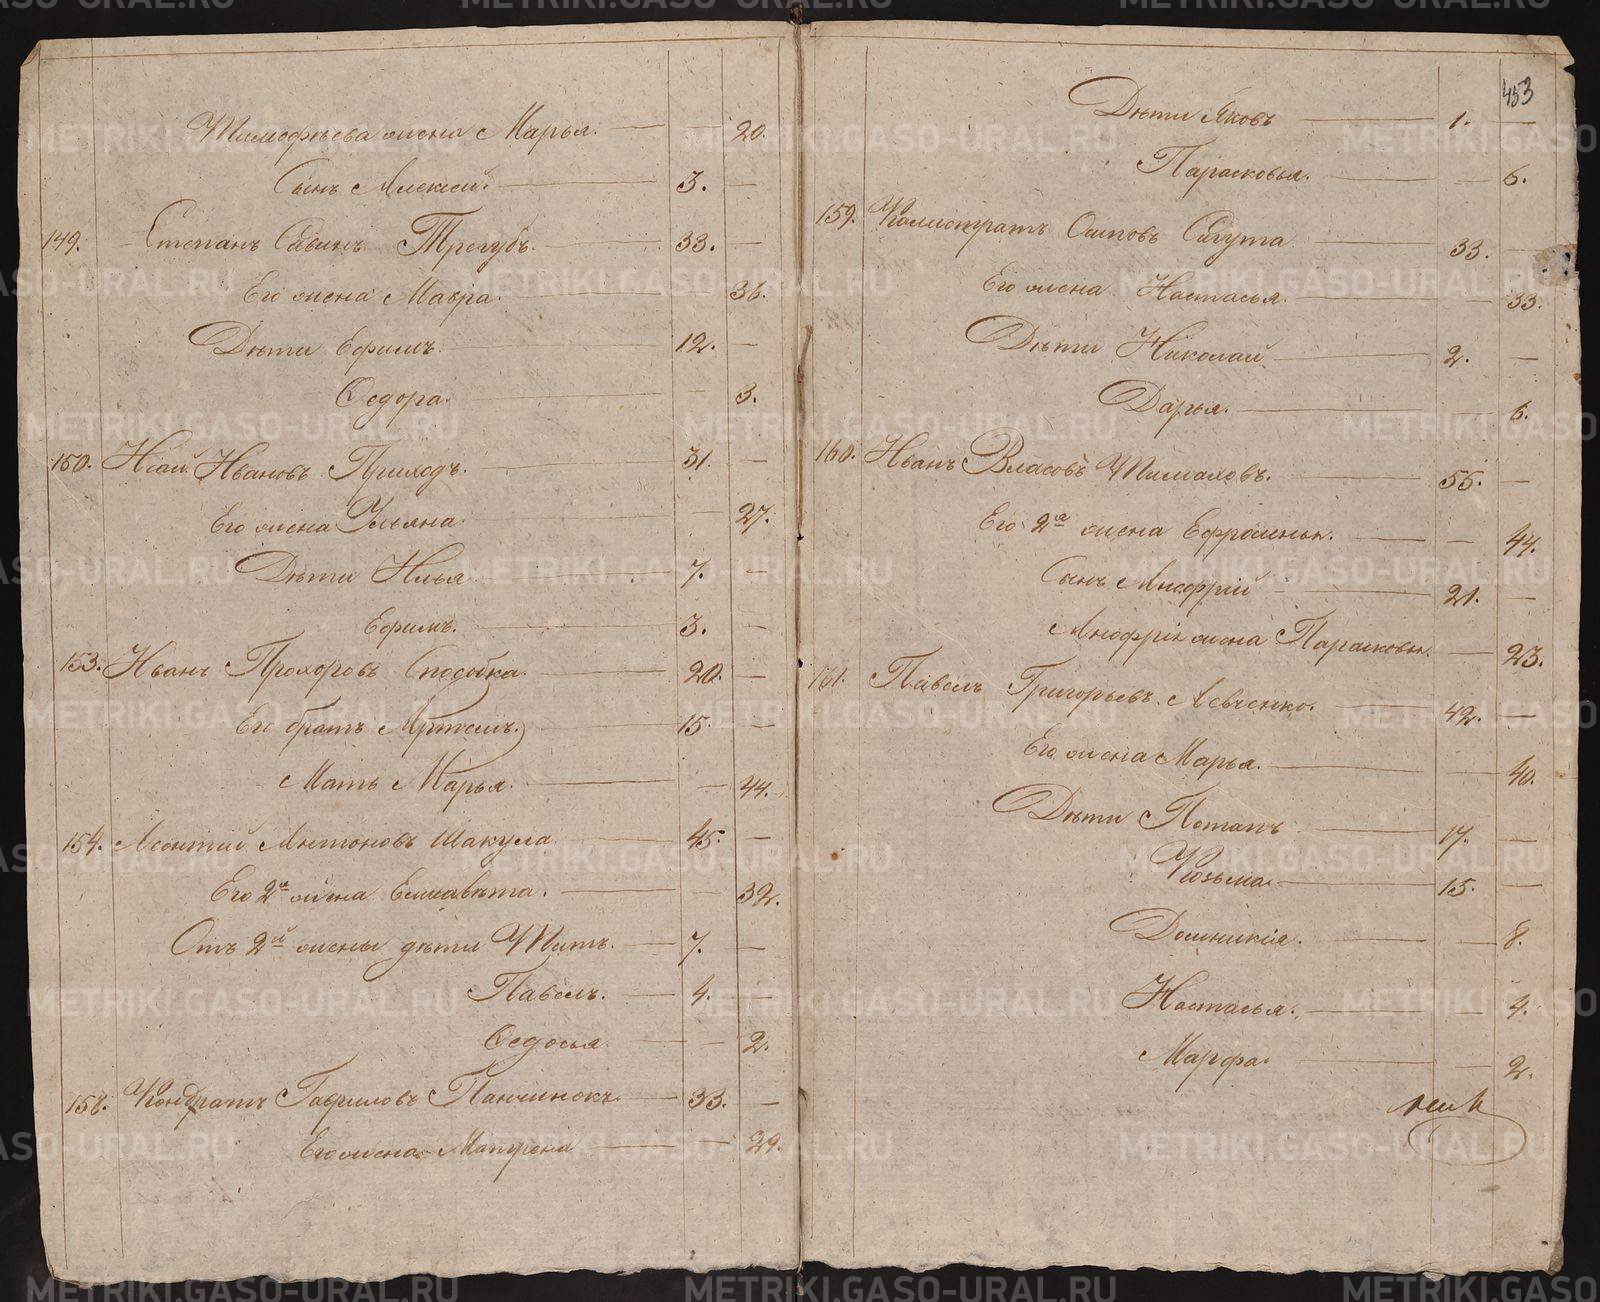 Тимофѣева жена Марья. 20.
Сынъ Алексей. 3.
149. Степанъ Савинъ Трегубъ. 33.
Его жена Мавра. 36.
Дѣти Ефимъ. 12.
Ѳедора. 3.
150. Исай Ивановъ Приходъ. 31.
Его жена Ульяна. 27.
Дѣти Илья 7.
Ефимъ. 3.
153. Иванъ Прохоровъ Сподобка 20.
Его братъ Артемъ. 15.
Мать Марья. 44.
154. Леонтий Антоновъ Шакула 45.
Его 2я жена Елисавѣта. 32.
Отъ 2й жены дѣти Титъ. 7.
Павелъ. 4.
Ѳедосья. 2.
158. Кондратъ Гавриловъ Панчинокъ. 33.
Его жена Матрена 29.
453
Дѣти Яковъ 1.
Парасковья. 6.
159. Калистратъ Осиповъ Сагута 33.
Его жена Настасья. 33.
Дѣти Николай 2.
Дарья. 6.
160. Иванъ Власовъ Тимаховъ. 55.
Его 2я жена Ефросинья. 44.
Сынъ Анофрій 21.
Анофрія жена Парасковья. 23.
161. Павелъ Григорьевъ Левченко. 42.
Его жена Марья. 40.
Дѣти Потапъ 17.
Козьма. 15.
Домникія. 8.
Настасья. 4.
Марфа. 2.
METRIKI.GASO-URAL.RU